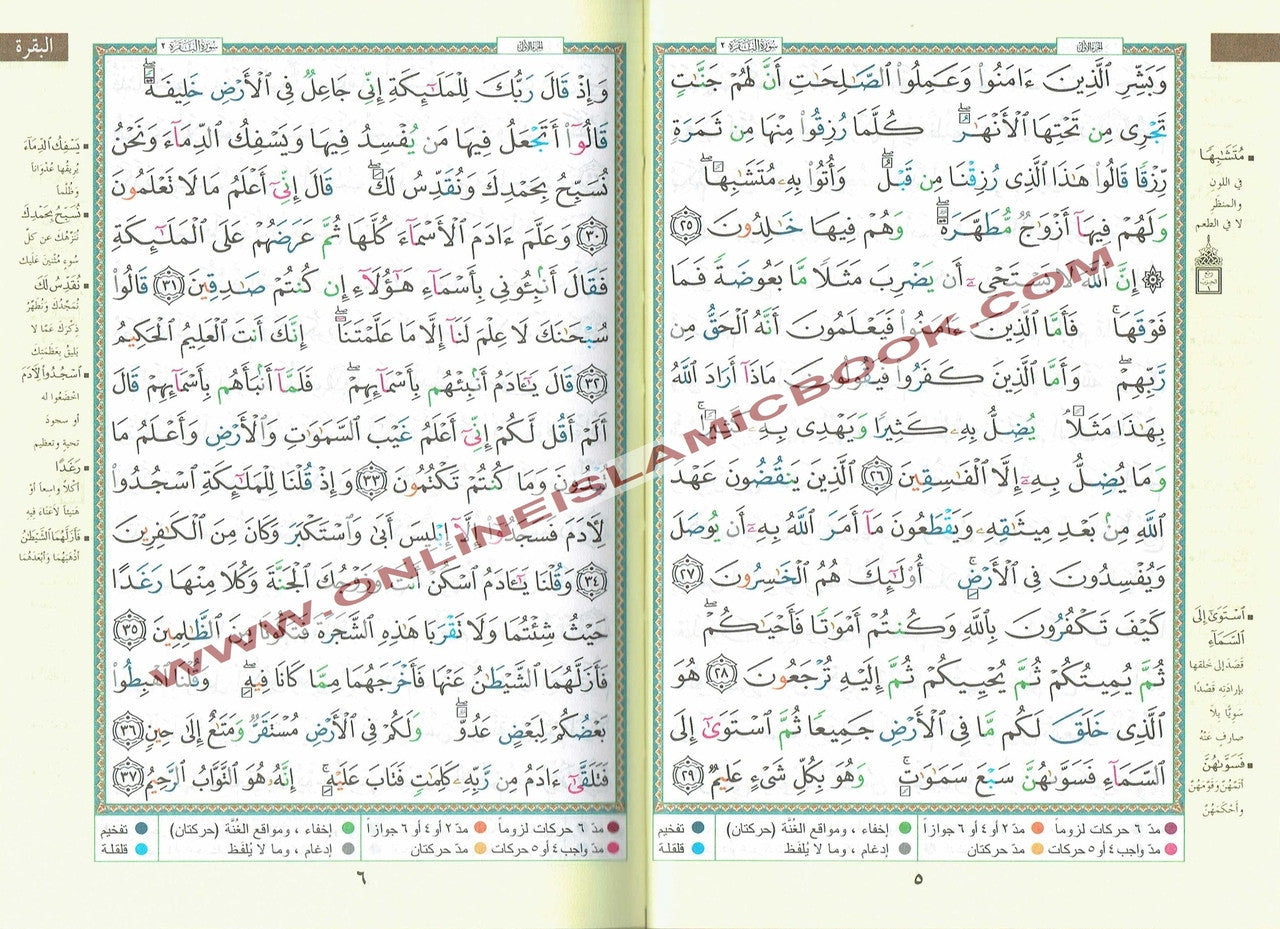 الجزء الأول
سورة البقرة ٢
وَبَشِّرِ ٱلَّذِينَ ءَامَنُوا۟ وَعَمِلُوا۟ ٱلصَّـٰلِحَـٰتِ أَنَّ لَهُمْ جَنَّـٰتٍ
تَجْرِى مِن تَحْتِهَا ٱلْأَنْهَـٰرُ كُلَّمَا رُزِقُوا۟ مِنْهَا مِن ثَمَرَةٍ
رِّزْقًا قَالُوا۟ هَـٰذَا ٱلَّذِى رُزِقْنَا مِن قَبْلُ وَأُتُوا۟ بِهِۦ مُتَشَـٰبِهًا
وَلَهُمْ فِيهَآ أَزْوَٰجٌ مُّطَهَّرَةٌ وَهُمْ فِيهَا خَـٰلِدُونَ ٢٥
۞ إِنَّ ٱللَّهَ لَا يَسْتَحْىِۦٓ أَن يَضْرِبَ مَثَلًا مَّا بَعُوضَةً فَمَا
فَوْقَهَا فَأَمَّا ٱلَّذِينَ ءَامَنُوا۟ فَيَعْلَمُونَ أَنَّهُ ٱلْحَقُّ مِن
رَّبِّهِمْ وَأَمَّا ٱلَّذِينَ كَفَرُوا۟ فَيَقُولُونَ مَاذَآ أَرَادَ ٱللَّهُ
بِهَـٰذَا مَثَلًا يُضِلُّ بِهِۦ كَثِيرًا وَيَهْدِى بِهِۦ كَثِيرًا
وَمَا يُضِلُّ بِهِۦٓ إِلَّا ٱلْفَـٰسِقِينَ ٢٦ ٱلَّذِينَ يَنقُضُونَ عَهْدَ
ٱللَّهِ مِنۢ بَعْدِ مِيثَـٰقِهِۦ وَيَقْطَعُونَ مَآ أَمَرَ ٱللَّهُ بِهِۦٓ أَن يُوصَلَ
وَيُفْسِدُونَ فِى ٱلْأَرْضِ أُو۟لَـٰٓئِكَ هُمُ ٱلْخَـٰسِرُونَ ٢٧
كَيْفَ تَكْفُرُونَ بِٱللَّهِ وَكُنتُمْ أَمْوَٰتًا فَأَحْيَـٰكُمْ
ثُمَّ يُمِيتُكُمْ ثُمَّ يُحْيِيكُمْ ثُمَّ إِلَيْهِ تُرْجَعُونَ ٢٨ هُوَ
ٱلَّذِى خَلَقَ لَكُم مَّا فِى ٱلْأَرْضِ جَمِيعًا ثُمَّ ٱسْتَوَىٰٓ إِلَى
ٱلسَّمَآءِ فَسَوَّىٰهُنَّ سَبْعَ سَمَـٰوَٰتٍ وَهُوَ بِكُلِّ شَىْءٍ عَلِيمٌ ٢٩
مُتَشَـٰبِهًا
في اللون
والمنظر
لا في الطعم
ربع
الحزب
١
ٱسْتَوَىٰٓ إِلَى
ٱلسَّمَآءِ
قَصَدَ إلى خلقها
بإرادته قَصْدًا
سَوِيًّا بلا
صارفٍ عَنْهُ
فَسَوَّىٰهُنَّ
أتمَّهُنَّ وقوّمَهُنَّ
وأحْكَمَهُنَّ
مدّ ٦ حركات لزوماً
مدّ ٢ أو ٤ أو ٦ جوازاً
إخفاء ، ومواقع الغُنَّة (حركتان)
تفخيم
مدّ واجب ٤ أو ٥ حركات
مدّ حركتان
إدغام ، وما لا يُلفظ
قلقلة
٥
البقرة
الجزء الأول
سورة البقرة ٢
وَإِذْ قَالَ رَبُّكَ لِلْمَلَـٰٓئِكَةِ إِنِّى جَاعِلٌ فِى ٱلْأَرْضِ خَلِيفَةً
قَالُوٓا۟ أَتَجْعَلُ فِيهَا مَن يُفْسِدُ فِيهَا وَيَسْفِكُ ٱلدِّمَآءَ وَنَحْنُ
نُسَبِّحُ بِحَمْدِكَ وَنُقَدِّسُ لَكَ قَالَ إِنِّىٓ أَعْلَمُ مَا لَا تَعْلَمُونَ
٣٠ وَعَلَّمَ ءَادَمَ ٱلْأَسْمَآءَ كُلَّهَا ثُمَّ عَرَضَهُمْ عَلَى ٱلْمَلَـٰٓئِكَةِ
فَقَالَ أَنۢبِـُٔونِى بِأَسْمَآءِ هَـٰٓؤُلَآءِ إِن كُنتُمْ صَـٰدِقِينَ ٣١ قَالُوا۟
سُبْحَـٰنَكَ لَا عِلْمَ لَنَآ إِلَّا مَا عَلَّمْتَنَآ إِنَّكَ أَنتَ ٱلْعَلِيمُ ٱلْحَكِيمُ
٣٢ قَالَ يَـٰٓـَٔادَمُ أَنۢبِئْهُم بِأَسْمَآئِهِمْ فَلَمَّآ أَنۢبَأَهُم بِأَسْمَآئِهِمْ قَالَ
أَلَمْ أَقُل لَّكُمْ إِنِّىٓ أَعْلَمُ غَيْبَ ٱلسَّمَـٰوَٰتِ وَٱلْأَرْضِ وَأَعْلَمُ مَا
تُبْدُونَ وَمَا كُنتُمْ تَكْتُمُونَ ٣٣ وَإِذْ قُلْنَا لِلْمَلَـٰٓئِكَةِ ٱسْجُدُوا۟
لِـَٔادَمَ فَسَجَدُوٓا۟ إِلَّآ إِبْلِيسَ أَبَىٰ وَٱسْتَكْبَرَ وَكَانَ مِنَ ٱلْكَـٰفِرِينَ
٣٤ وَقُلْنَا يَـٰٓـَٔادَمُ ٱسْكُنْ أَنتَ وَزَوْجُكَ ٱلْجَنَّةَ وَكُلَا مِنْهَا رَغَدًا
حَيْثُ شِئْتُمَا وَلَا تَقْرَبَا هَـٰذِهِ ٱلشَّجَرَةَ فَتَكُونَا مِنَ ٱلظَّـٰلِمِينَ ٣٥
فَأَزَلَّهُمَا ٱلشَّيْطَـٰنُ عَنْهَا فَأَخْرَجَهُمَا مِمَّا كَانَا فِيهِ وَقُلْنَا ٱهْبِطُوا۟
بَعْضُكُمْ لِبَعْضٍ عَدُوٌّ وَلَكُمْ فِى ٱلْأَرْضِ مُسْتَقَرٌّ وَمَتَـٰعٌ إِلَىٰ حِينٍ ٣٦
فَتَلَقَّىٰٓ ءَادَمُ مِن رَّبِّهِۦ كَلِمَـٰتٍ فَتَابَ عَلَيْهِ إِنَّهُۥ هُوَ ٱلتَّوَّابُ ٱلرَّحِيمُ ٣٧
يَسْفِكُ ٱلدِّمَآءَ
يُريقُها عُدْوَاناً
وظُلْماً
نُسَبِّحُ بِحَمْدِكَ
نُنَزِّهُكَ عن كلِّ
سُوءٍ مُثْنِينَ عَلَيْك
نُقَدِّسُ لَكَ
نُمَجِّدُكَ ونُطَهِّرُ
ذِكْرَكَ عَمَّا لا
يَليقُ بعَظَمَتِك
ٱسْجُدُوا۟ لِـَٔادَمَ
اخْضَعُوا له
أو سجودَ
تحيةٍ وتعظيم
رَغَدًا
أكْلاً واسعاً أوْ
هَنيئاً لا عَنَاءَ فيه
فَأَزَلَّهُمَا ٱلشَّيْطَـٰنُ
أذْهَبَهُما وأبْعَدَهُما
مدّ ٦ حركات لزوماً
مدّ ٢ أو ٤ أو ٦ جوازاً
إخفاء ، ومواقع الغُنَّة (حركتان)
تفخيم
مدّ واجب ٤ أو ٥ حركات
مدّ حركتان
إدغام ، وما لا يُلفظ
قلقلة
٦
WWW.ONLINEISLAMICBOOK.COM